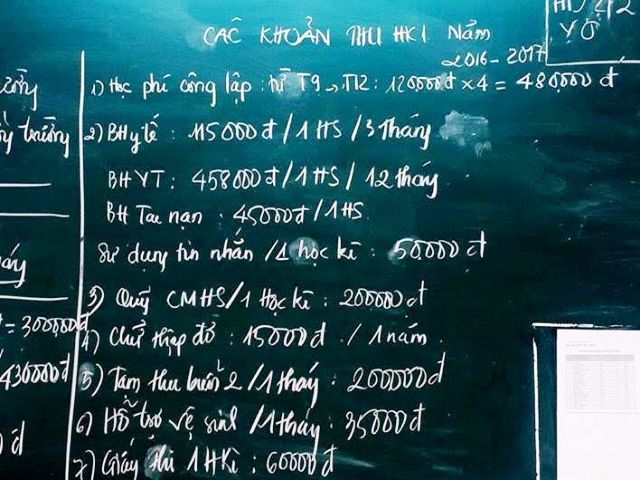 CÁC KHOẢN THU HKI Năm
2016-2017
1) Học phí công lập: từ T9 → T12: 120000đ x 4 = 480,000 đ
2) BH y tế: 115000đ / 1HS / 3 tháng
BHYT: 458000đ / 1HS / 12 tháng
BH Tai nạn: 45000đ / 1HS
Sử dụng tin nhắn / 1 học kì: 50,000 đ
3) Quỹ CMHS / 1 Học kì: 200000đ
4) Chữ thập đỏ: 15000đ / 1 năm
5) Tạm thu buổi 2 / 1 tháng: 200000đ
6) Hỗ trợ vệ sinh / 1 tháng: 35000đ
7) Giấy thi 1HKì: 60000đ
trưởng
= 300,000đ
430000đ
đ